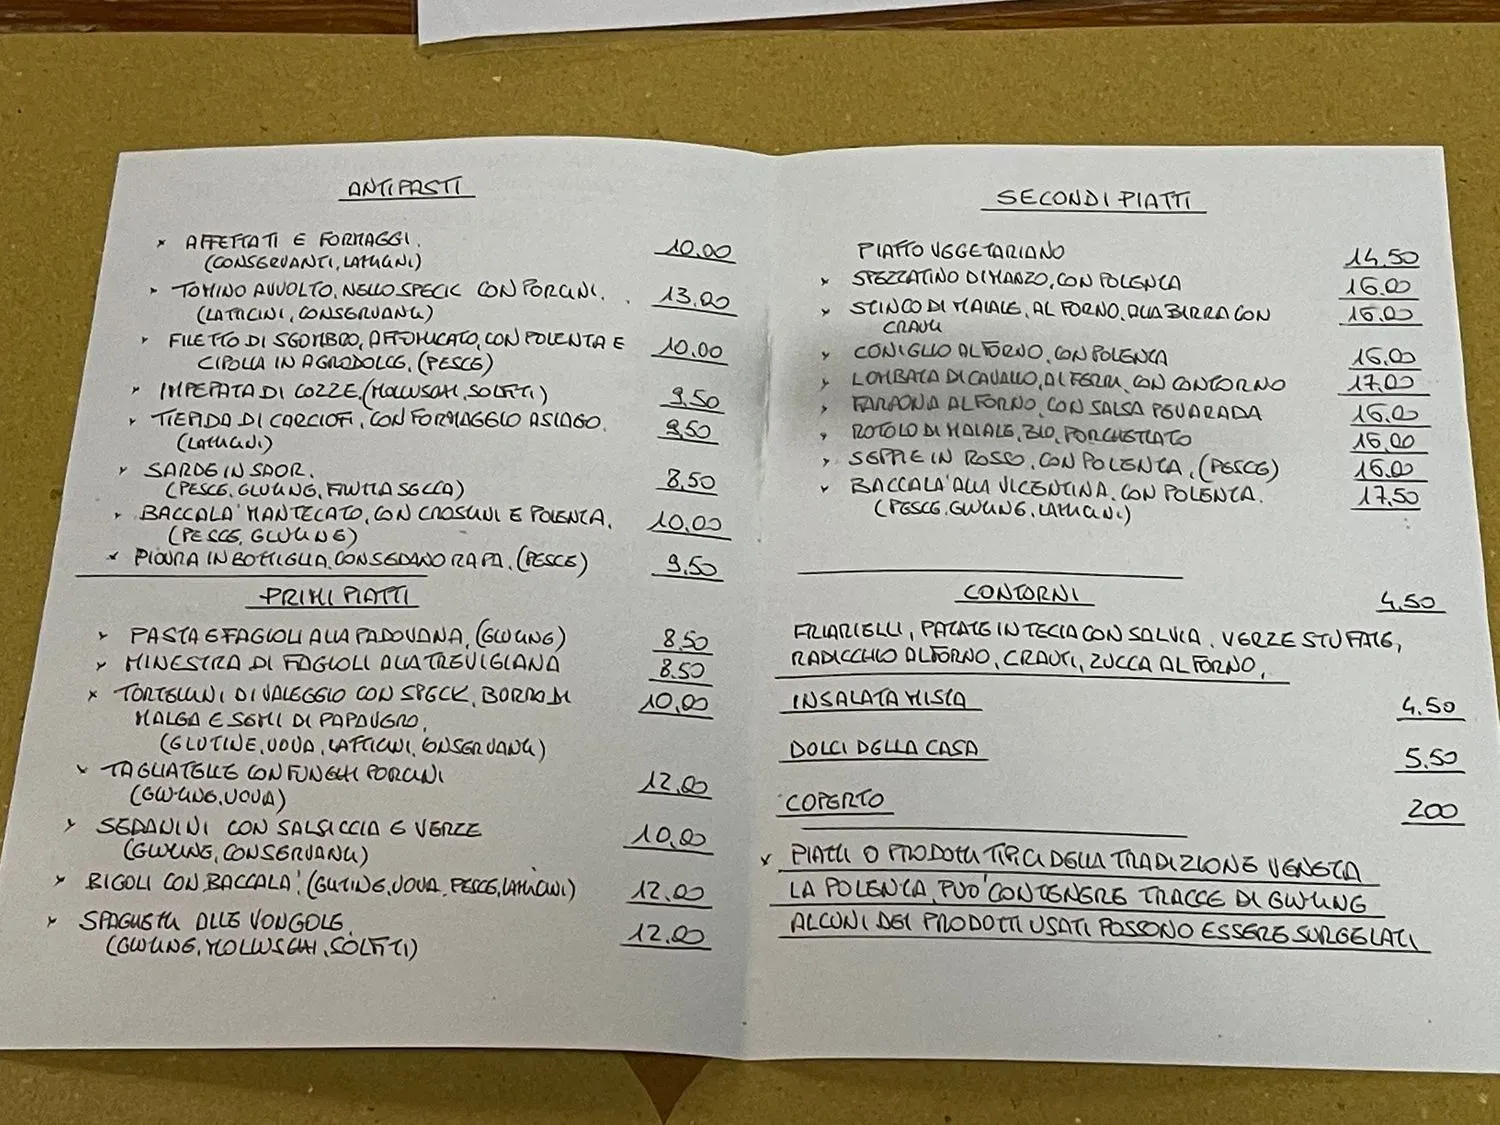 ANTIPASTI
× AFFETTATI E FORMAGGI. 10.00
(CONSERVANTI, LATTICINI)
× TOMINO AVVOLTO, NELLO SPECK CON PORCINI. 13.00
(LATTICINI, CONSERVANTI)
× FILETTO DI SGOMBRO, AFFUMICATO, CON POLENTA E 10.00
CIPOLLA IN AGRODOLCE, (PESCE)
× IMPEPATA DI COZZE, (MOLLUSCHI, SOLFITI) 9.50
× TIEPIDA DI CARCIOFI, CON FORMAGGIO ASIAGO. 9.50
(LATTICINI)
× SARDE IN SAOR. 8.50
(PESCE, GLUTINE, FRUTTA SECCA)
× BACCALA' MANTECATO, CON CROSTINI E POLENTA. 10.00
(PESCE, GLUTINE)
× PIOVRA IN BOTTIGLIA, CON SEDANO RAPA. (PESCE) 9.50
PRIMI PIATTI
× PASTA E FAGIOLI ALLA PADOVANA, (GLUTINE) 8.50
× MINESTRA DI FAGIOLI ALLA TREVIGIANA 8.50
× TORTELLINI DI VALEGGIO CON SPECK, BORRO DI 10.00
MALGA E SEMI DI PAPAVERO.
(GLUTINE, UOVA, LATTICINI, CONSERVANTI)
× TAGLIATELLE CON FUNGHI PORCINI 12.00
(GLUTINE, UOVA)
× SEDANINI CON SALSICCIA E VERZE 10.00
(GLUTINE, CONSERVANTI)
× BIGOLI CON BACCALA'. (GLUTINE, UOVA, PESCE, LATTICINI) 12.00
× SPAGHETTI ALLE VONGOLE. 12.00
(GLUTINE, MOLLUSCHI, SOLFITI)
SECONDI PIATTI
PIATTO VEGETARIANO 14.50
× SPEZZATINO DI MANZO, CON POLENTA 16.00
× STINCO DI MAIALE, AL FORNO, ALLA BIRRA CON 16.00
CRAUTI
× CONIGLIO AL FORNO, CON POLENTA 16.00
× LOMBATA DI CAVALLO, AI FERRI, CON CONTORNO 17.00
× FARAONA AL FORNO, CON SALSA PEVARADA 16.00
× ROTOLO DI MAIALE, BIO, PORCHETTATO 16.00
× SEPPIE IN ROSSO, CON POLENTA, (PESCE) 16.00
× BACCALA' ALLA VICENTINA, CON POLENTA. 17.50
(PESCE, GLUTINE, LATTICINI)
CONTORNI 4.50
FRIARIELLI, PATATE IN TECIA CON SALVIA, VERZE STUFATE,
RADICCHIO AL FORNO, CRAUTI, ZUCCA AL FORNO.
INSALATA MISTA 4.50
DOLCI DELLA CASA 5.50
COPERTO 200
× PIATTI O PRODOTTI TIPICI DELLA TRADIZIONE VENETA
LA POLENTA, PUO' CONTENERE TRACCE DI GLUTINE
ALCUNI DEI PRODOTTI USATI POSSONO ESSERE SURGELATI